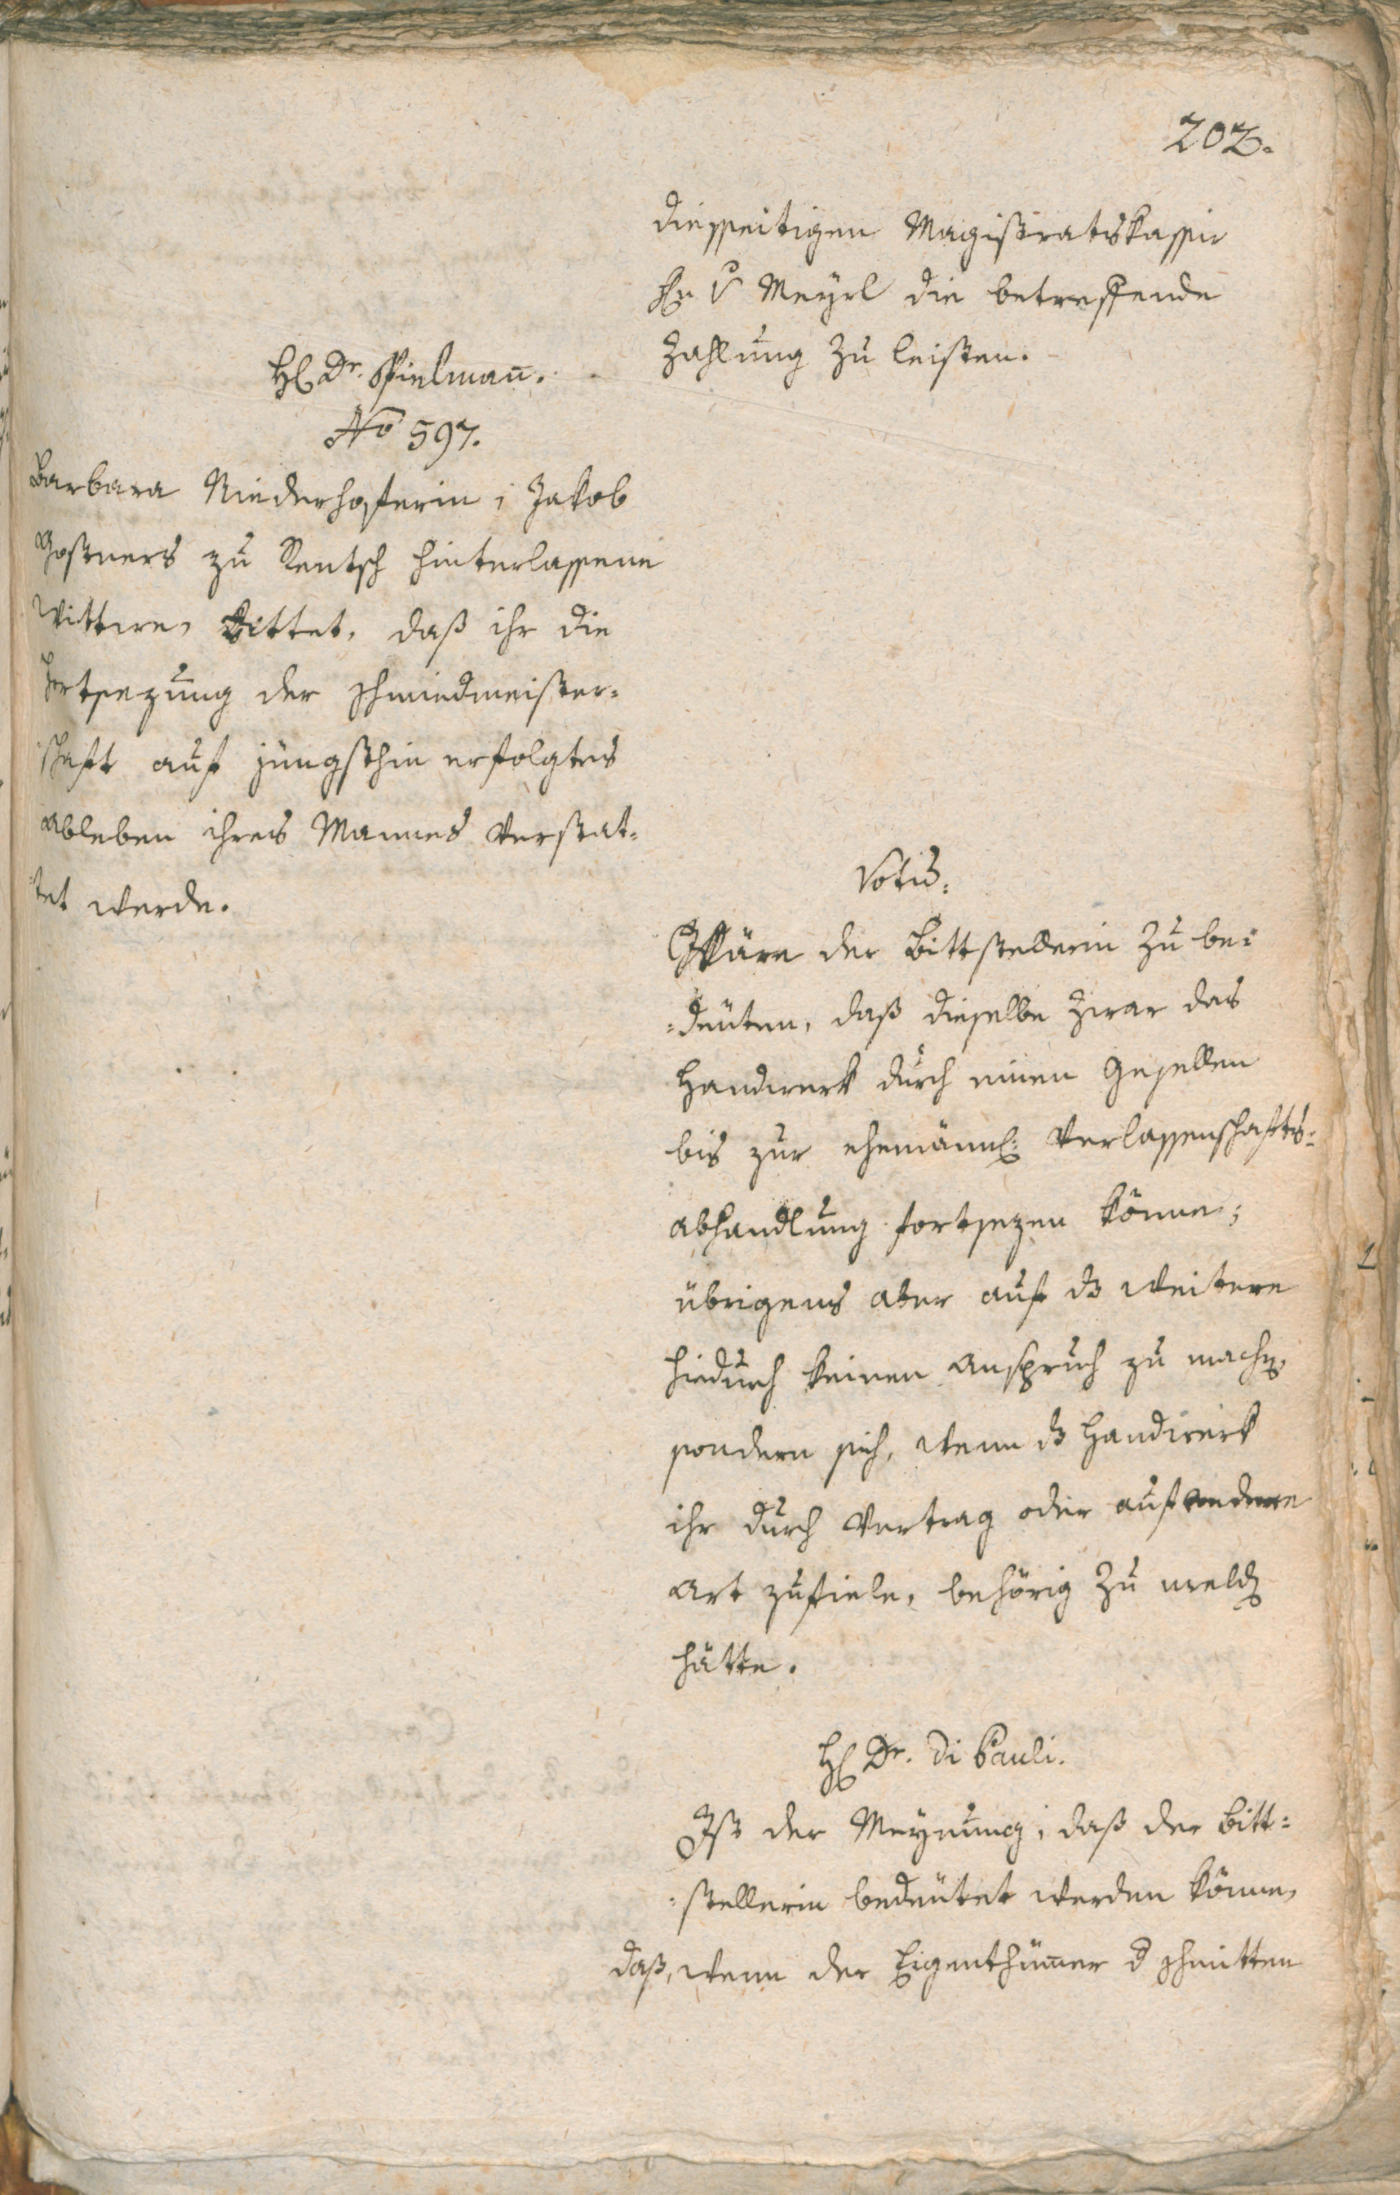 202.
diesseitigen Magistratskassier
Hr. v Meyrl die betreffende
Zahlung zu leisten.
H: Dr. Spielmañ.
No 597.
Barbara Niederhoferin, Jakob
Gostners zu Rentsch hinterlassene
Wittwe, bittet, daß ihr die
Fortsezung der Schmiedmeister-
schaft auf jüngsthin erfolgtes
Ableben ihres Mannes verstat-
tet werde.
Votum:
Wäre der Bittstellerin zu be-
=deuten, daß dieselbe zwar das
Handwerk durch einen Gesellen
bis zur ehemännl: Verlassenschafts-
abhandlung fortsezen könne;
übrigens aber auf das weitere
hiedurch keinen Anspruch zu machen,
sondern sich, wenn das Handwerk
ihr durch Vertrag oder auf andere
Art zufiele, behörig zu melden
hätte.
H: Dr. Di Pauli.
Ist der Meynung, daß der Bitt=
=stellerin bedeutet werden könne,
daß, wenn der Eigenthümer der Schmitten